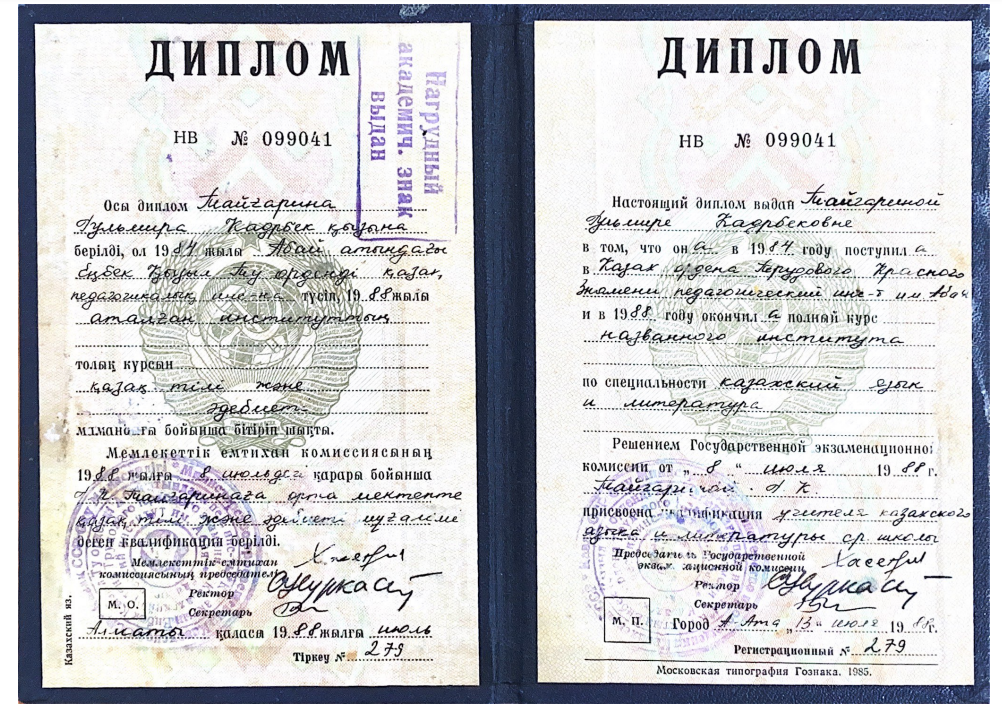 ДИПЛОМ
Нагрудный
академич. знак
выдан
НВ № 099041
Осы диплом Тайгарина
Гульмира Кадрбек қызына
берілді, ол 1984 жылы Абай атындағы
Еңбек Қызыл Ту орденді қазақ,
педагогикалық инс-на түсіп, 1988 жылы
аталған институттың
толық курсын
қазақ тілі және
әдебиеті
мамандығы бойынша бітіріп шықты.
Мемлекеттік емтихан комиссиясының
1988 жылғы 8 июльдегі қарары бойынша
Тайгаринаға орта мектепте
қазақ тілі және әдебиеті мұғалімі
деген квалификация берілді.
Мемлекеттік емтихан
комиссиясының председателі
Ректор
Секретарь
М. О.
Алматы қаласы 1988 жылғы июль
Тіркеу № 279
Казахский из.
ДИПЛОМ
НВ № 099041
Настоящий диплом выдан Тайгариной
Гульмире Кадрбековне
в том, что она в 1984 году поступила
в Казах ордена Трудового Красного
Знамени педагогический инс-т им. Абая
и в 1988 году окончила полный курс
названного института
по специальности казахский язык
и литература
Решением Государственной экзаменационной
комиссии от „ 8 “ июля 1988 г.
Тайгариной Г. К.
присвоена квалификация учителя казахского
языка и литературы ср. школы
Председатель Государственной
экзаменационной комиссии
Ректор
Секретарь
М. П.
Город А-Ата „ 13 “ июля 1988 г.
Регистрационный № 279
Московская типография Гознака. 1985.